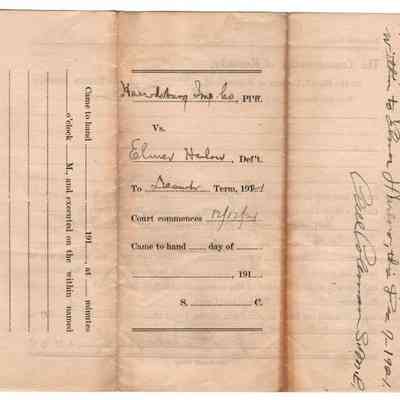 Came to hand 191 , at minutes
o'clock M., and executed on the within named
Harrodsburg Imp Co, Pl'ff.
Vs.
Elmer Harlow, Def't.
To December Term, 1921
Court commences 12/12/21
Came to hand day of
, 191
S. C.
within to Elmer
Dec 9-1921
Coleman